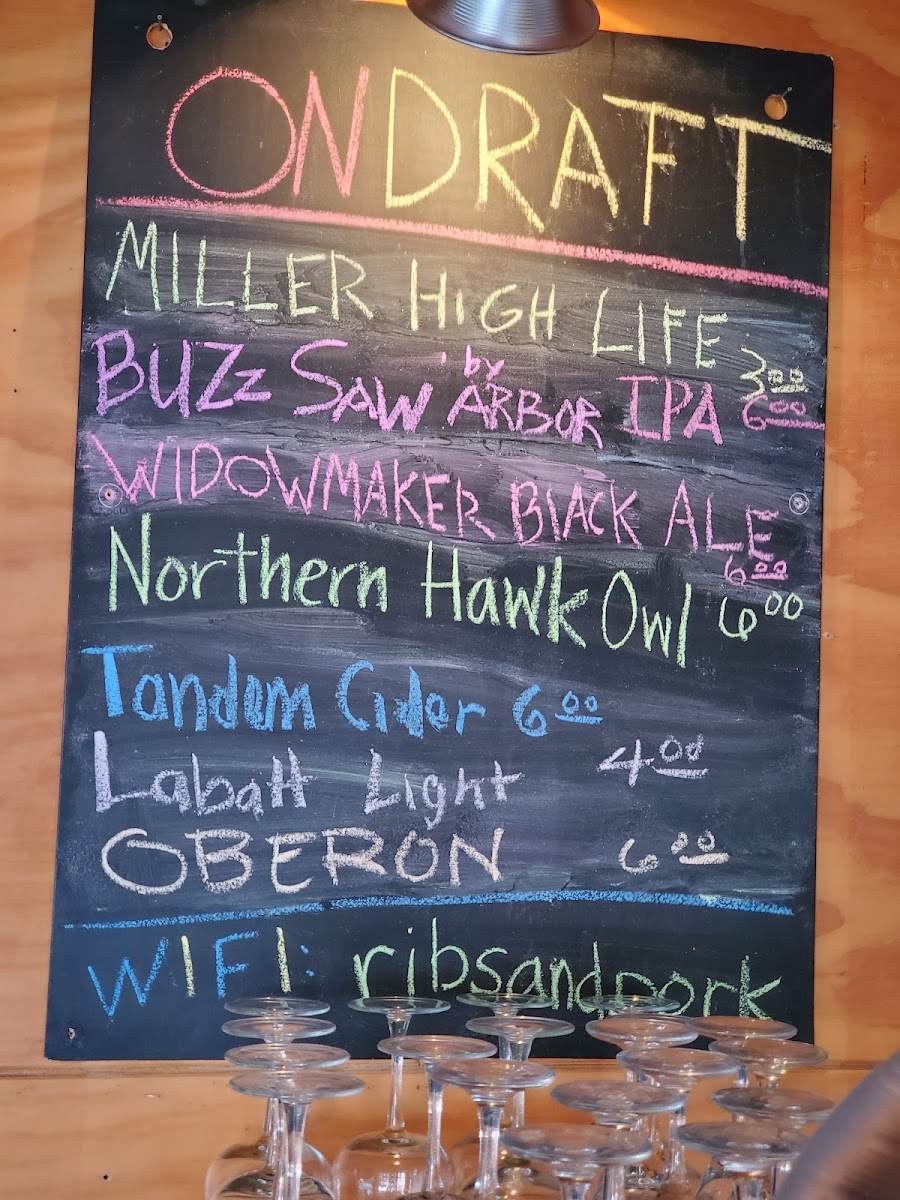 ON DRAFT
MILLER HIGH LIFE 3.00
BUZZ SAW by ARBOR IPA 6.00
WIDOWMAKER BLACK ALE 6.00
Northern Hawk Owl 6.00
Tandem Cider 6.00
Labatt Light 4.00
OBERON 6.00
WIFI: ribsandpork